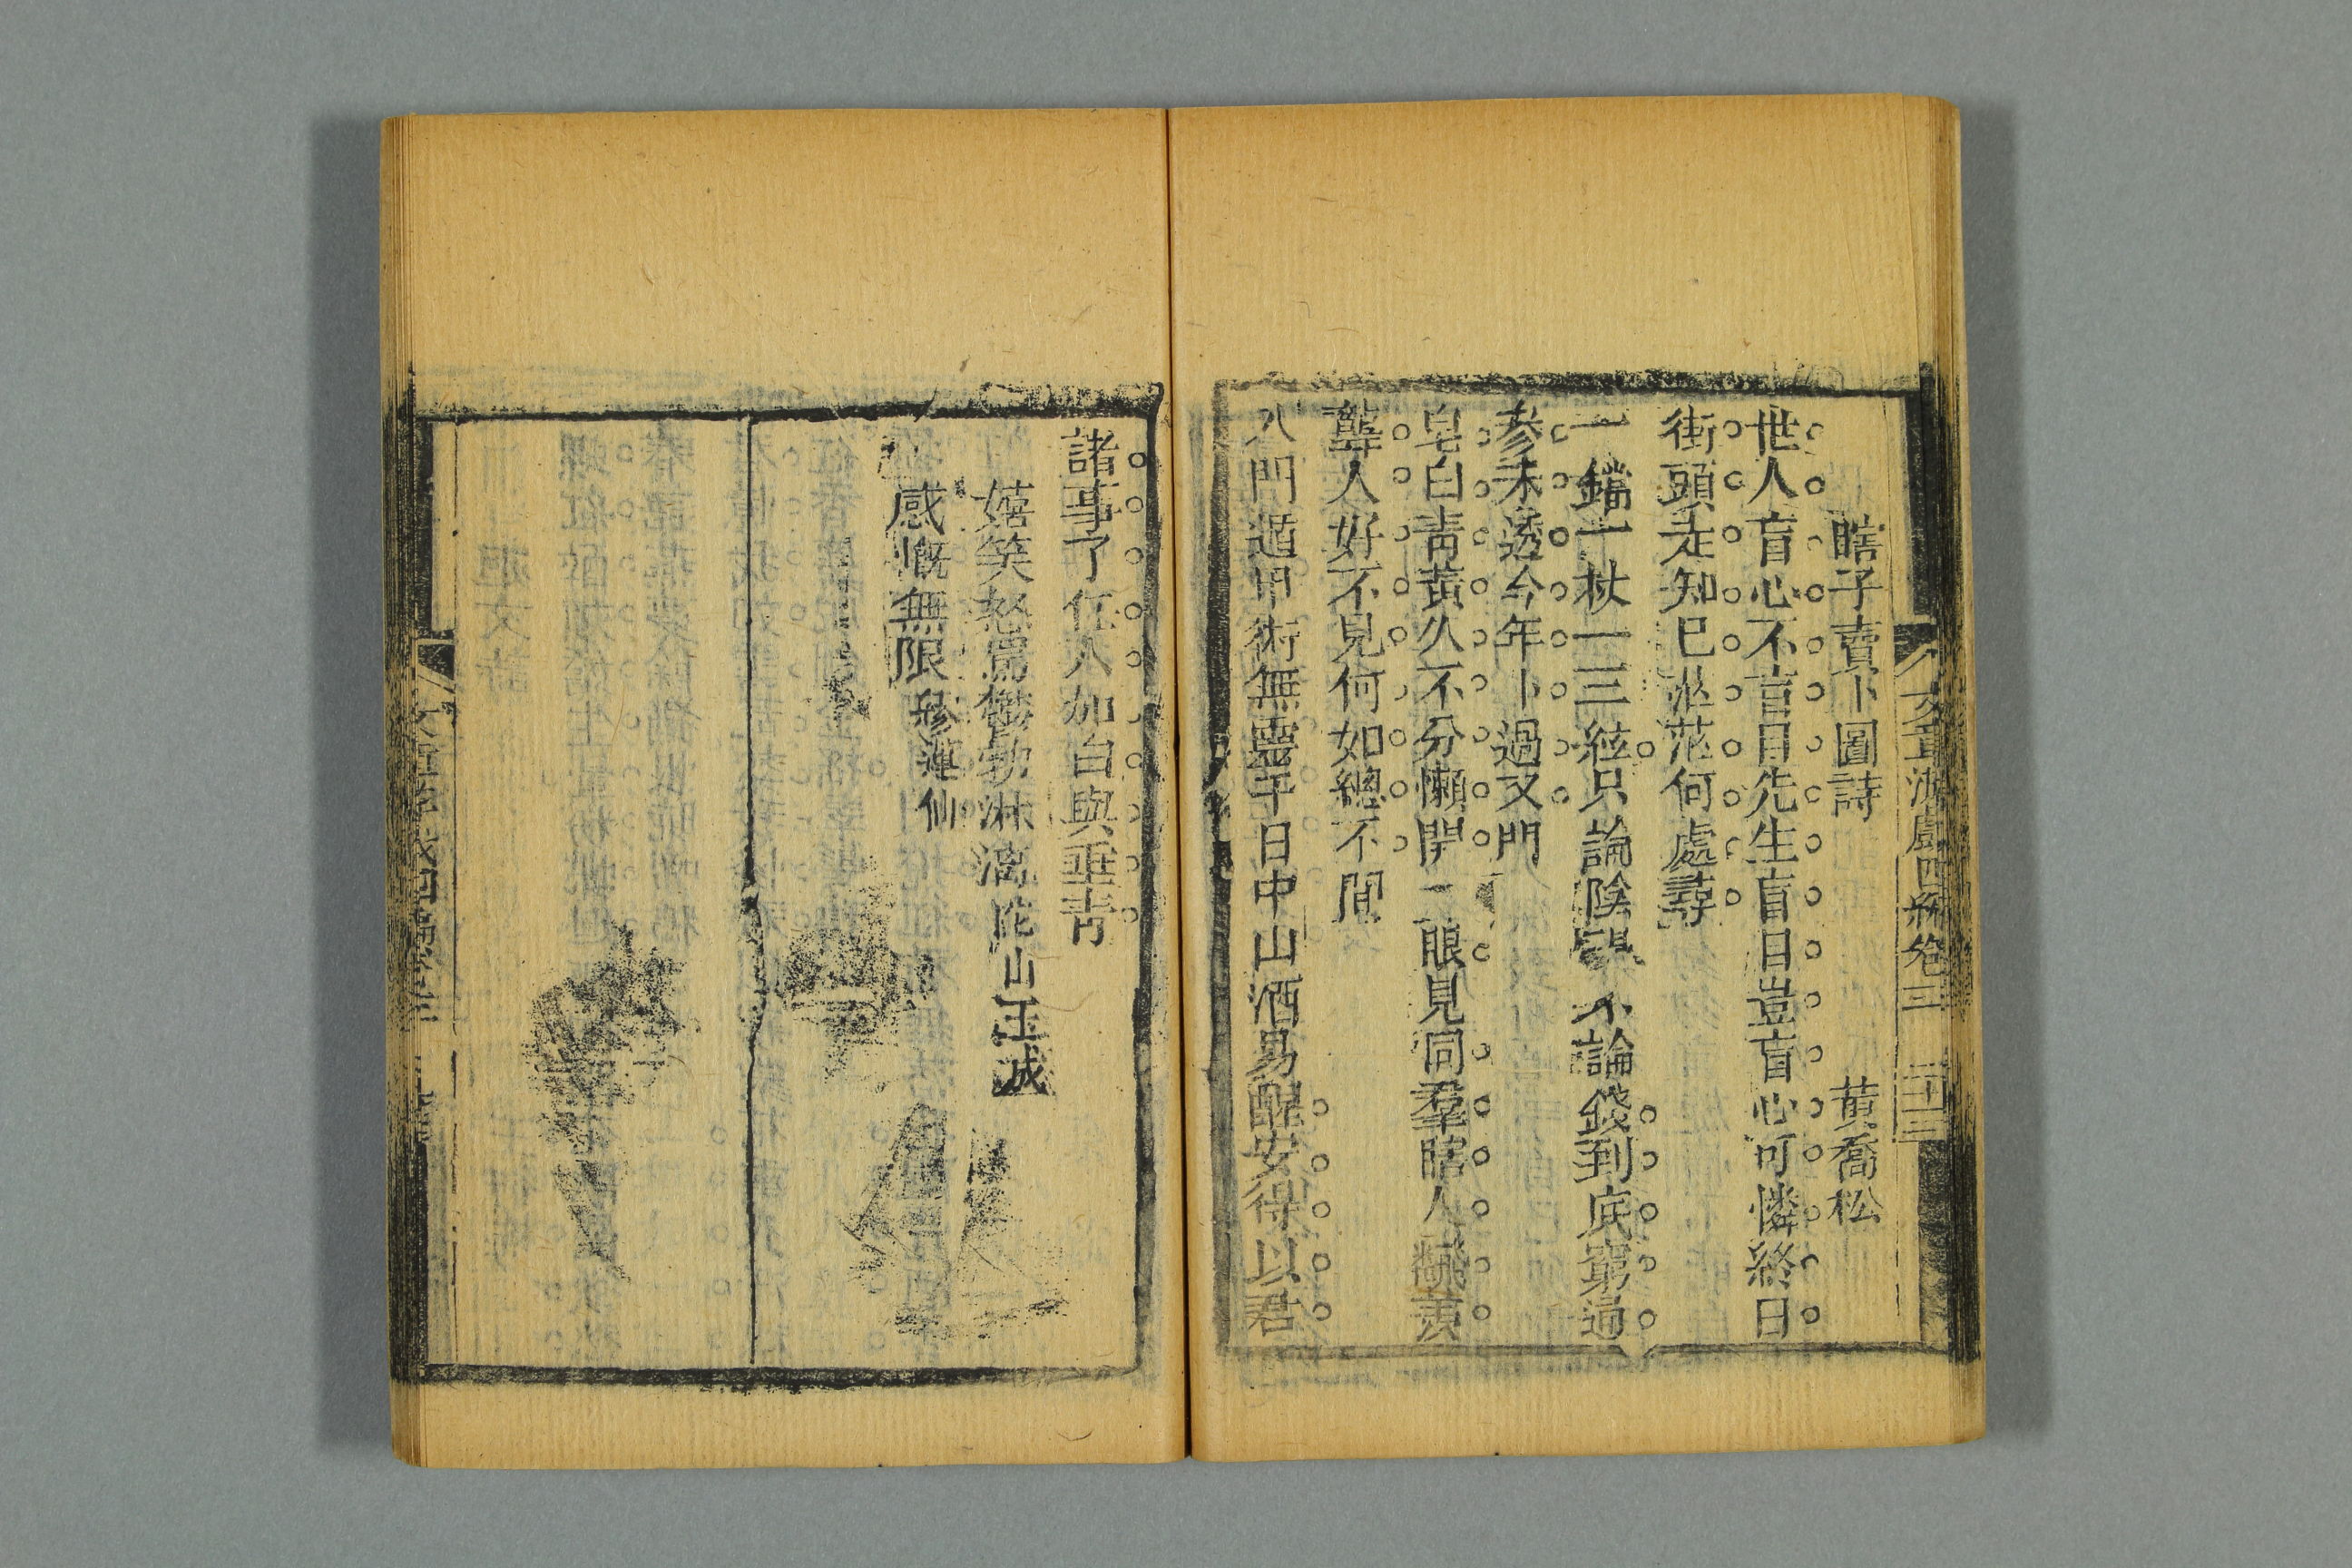 文章游戲四編卷三 二十三
瞎子賣卜圖詩 黃喬松
世人盲心不盲目先生盲目豈盲心可憐終日
街頭走知己茫茫何處尋
一鐺一杖一三絃只論陰陽不論錢到底窮通
參未透今年卜過又門
皂白靑黃久不分懶開一眼見同羣瞎人
聾人好不見何如總不聞
八門遁甲術無靈平日中山酒易醒安得以君
諸事了任人加白與垂靑
嬉笑怒罵勃淋漓 山玉成
感慨無限 蓮仙